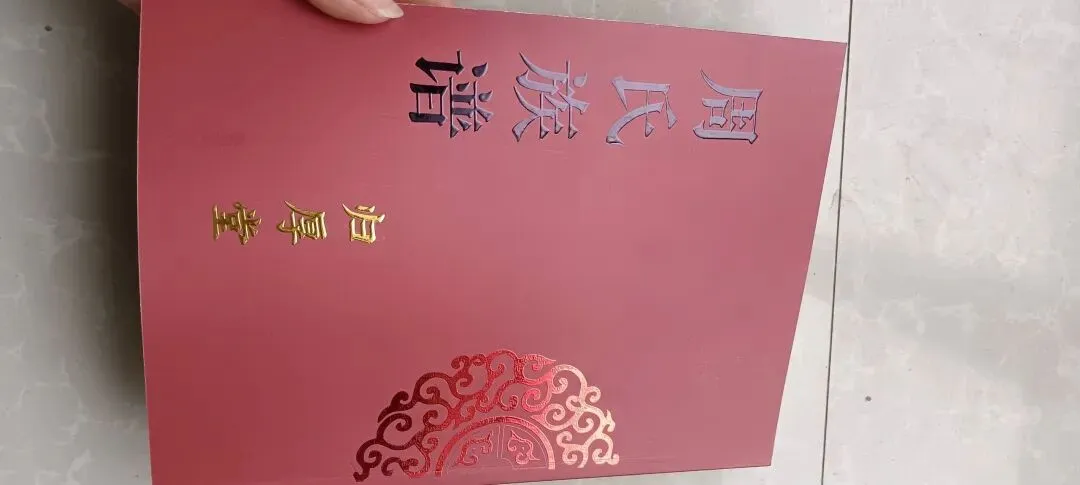 周氏族谱
归厚堂